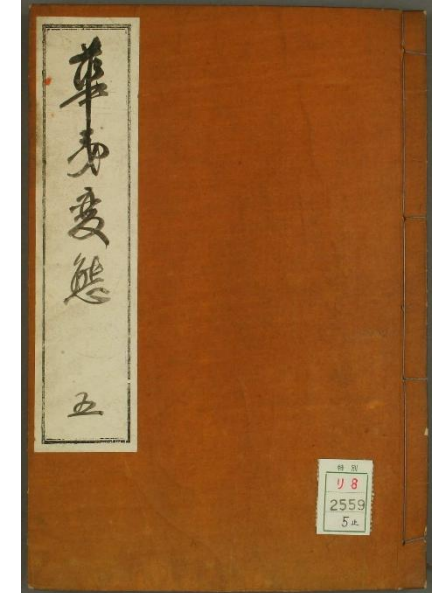 華夷変態
五
特別
リ8
2559
5止